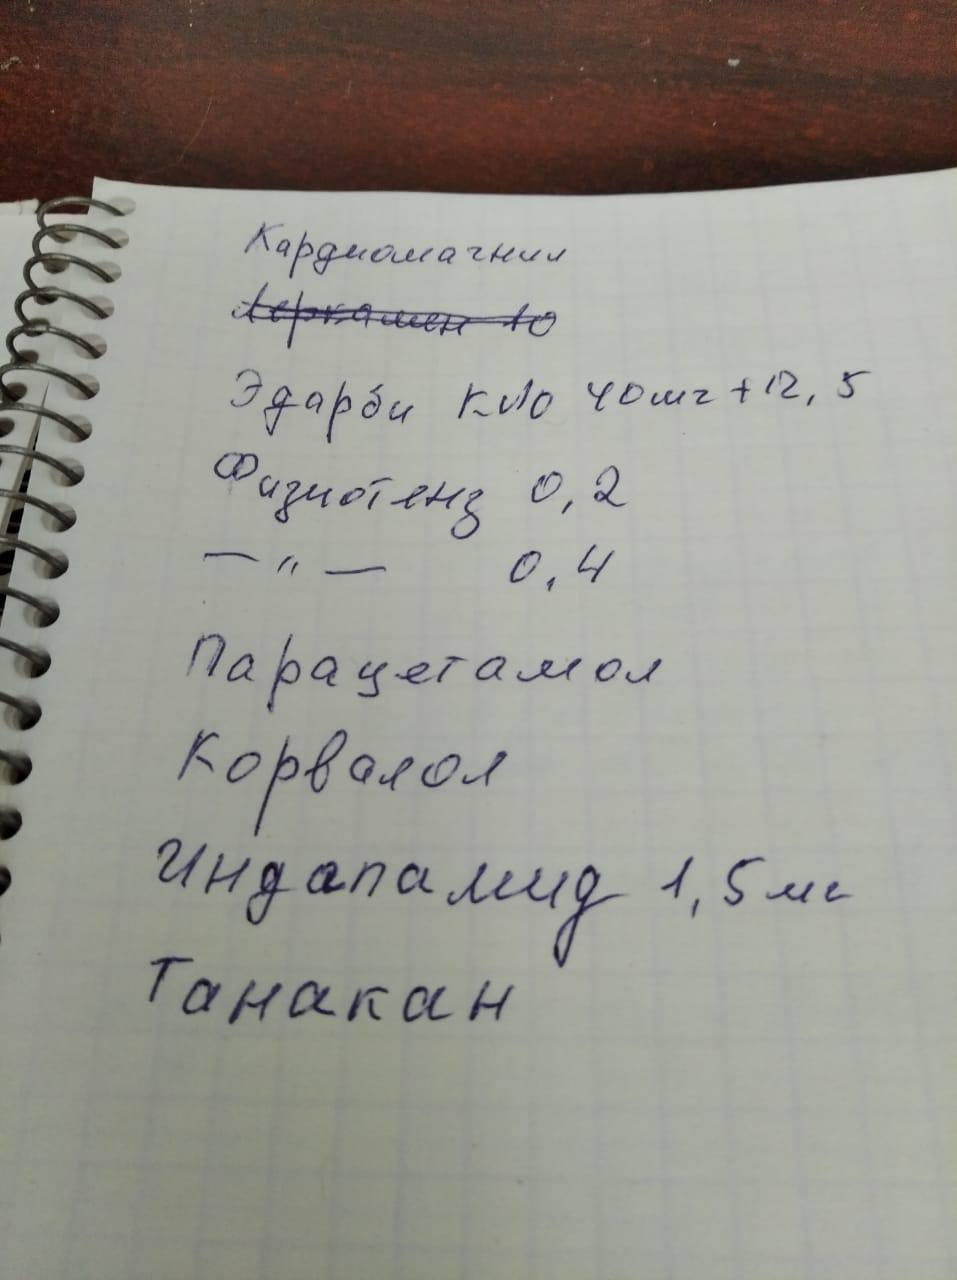 Кардиомагнил
Леркамен 10
Эдарби Кло 40мг + 12,5
Физиотенз 0,2
— " — 0,4
Парацетамол
Корвалол
Индапамид 1,5мг
Танакан